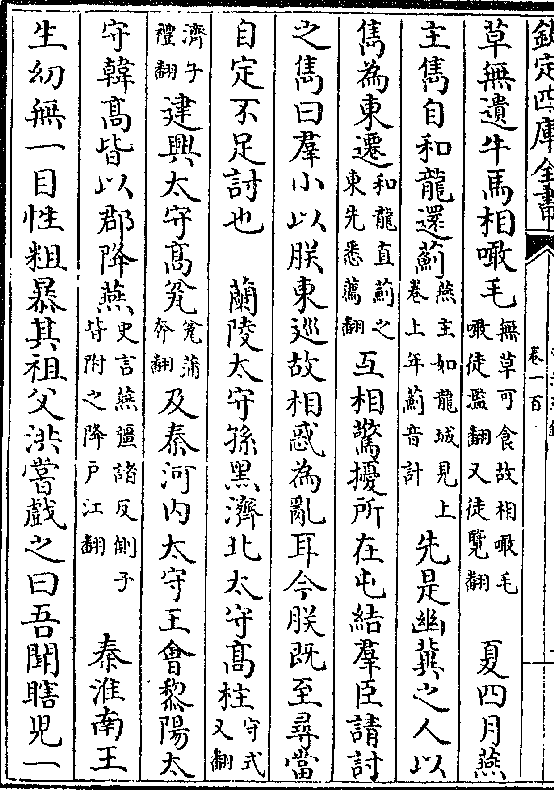 欽定四庫全書
卷一百
草無遺牛馬相噉毛無草可食故相噉毛噉徒濫翻又徒覽翻 夏四月燕
主雋自和龍還薊燕主如龍城見上卷上年薊音計 先是幽冀之人以
雋為東遷和龍直薊之東先悉薦翻互相驚擾所在屯結羣臣請討
之雋曰羣小以朕東巡故相惑為亂耳今朕既至尋當
自定不足討也 蘭陵太守孫黑濟北太守髙柱守式又翻
濟子禮翻建興太守髙瓫瓫蒲奔翻及秦河内太守王會黎陽太
守韓髙皆以郡降燕史言燕疆諸反側子皆附之降戸江翻 秦淮南王
生幼無一目性粗暴其祖父洪嘗戲之曰吾聞瞎兒一